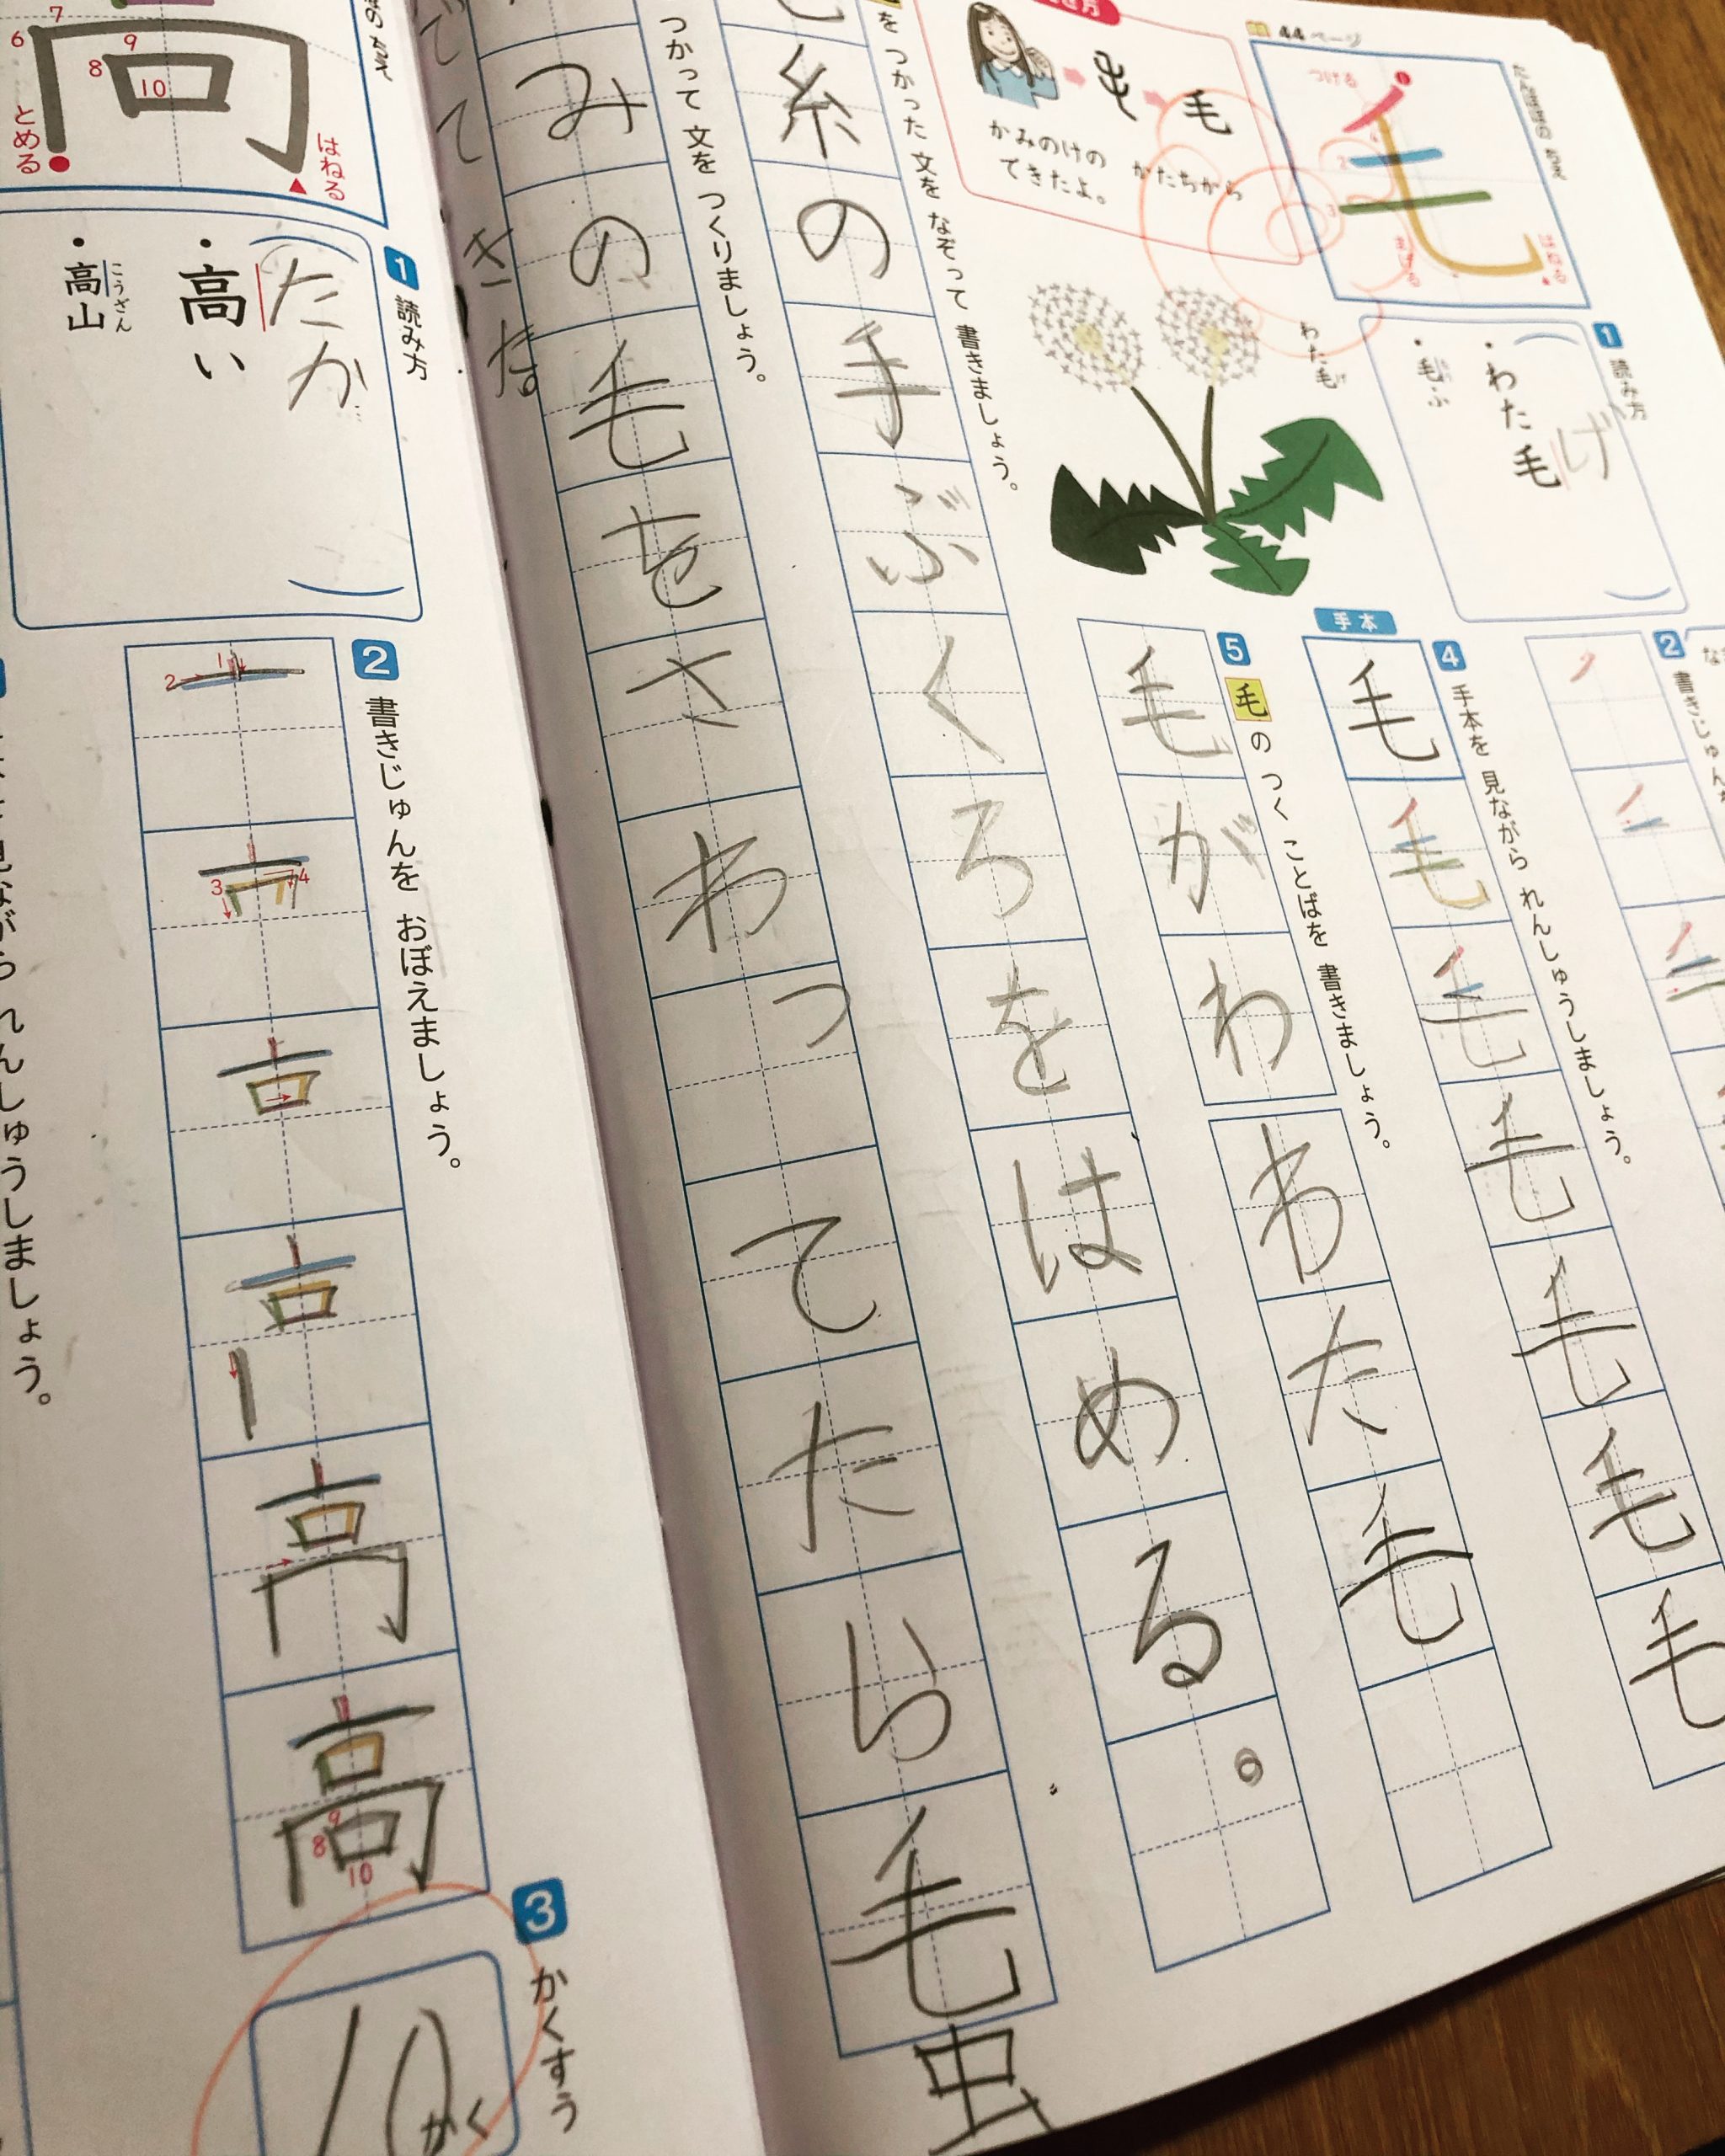 44ページ
たんぽぽの わた毛
つける
まげる
はねる
毛
かみのけの かたちから
できたよ。
わた毛
1 読み方
げ
・わた毛
・毛ふ
2 書きじゅん
手本
4 手本を 見ながら れんしゅうしましょう。
毛毛毛毛毛毛毛
5 毛の つく ことばを 書きましょう。
毛がわ
わた毛
を つかった 文を なぞって 書きましょう。
糸の手ぶくろをはめる。
つかって 文を つくりましょう。
みの毛をさわってたら毛虫
でてきた
高
6
7
8
9
10
とめる
はねる
1 読み方
たか
・高い
こうざん
・高山
2 書きじゅんを おぼえましょう。
1
2
3
4
高
8
9
10
3 かくすう
10かく
見ながら れんしゅうしましょう。